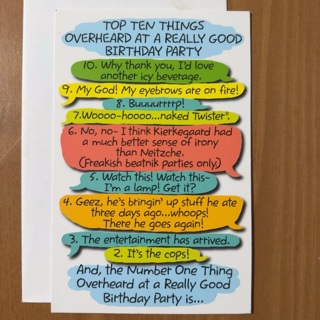 TOP TEN THINGS
OVERHEARD AT A REALLY GOOD
BIRTHDAY PARTY
10. Why thank you, I'd love
another icy beverage.
9. My God! My eyebrows are on fire!
8. Buuuurrrrp!
7. Woooo-hoooo...naked Twister®.
6. No, no- I think Kierkegaard had
a much better sense of irony
than Neitzche.
(Freakish beatnik parties only)
5. Watch this! Watch this-
I'm a lamp! Get it?
4. Geez, he's bringin' up stuff he ate
three days ago...whoops!
There he goes again!
3. The entertainment has arrived.
2. It's the cops!
And, the Number One Thing
Overheard at a Really Good
Birthday Party is...